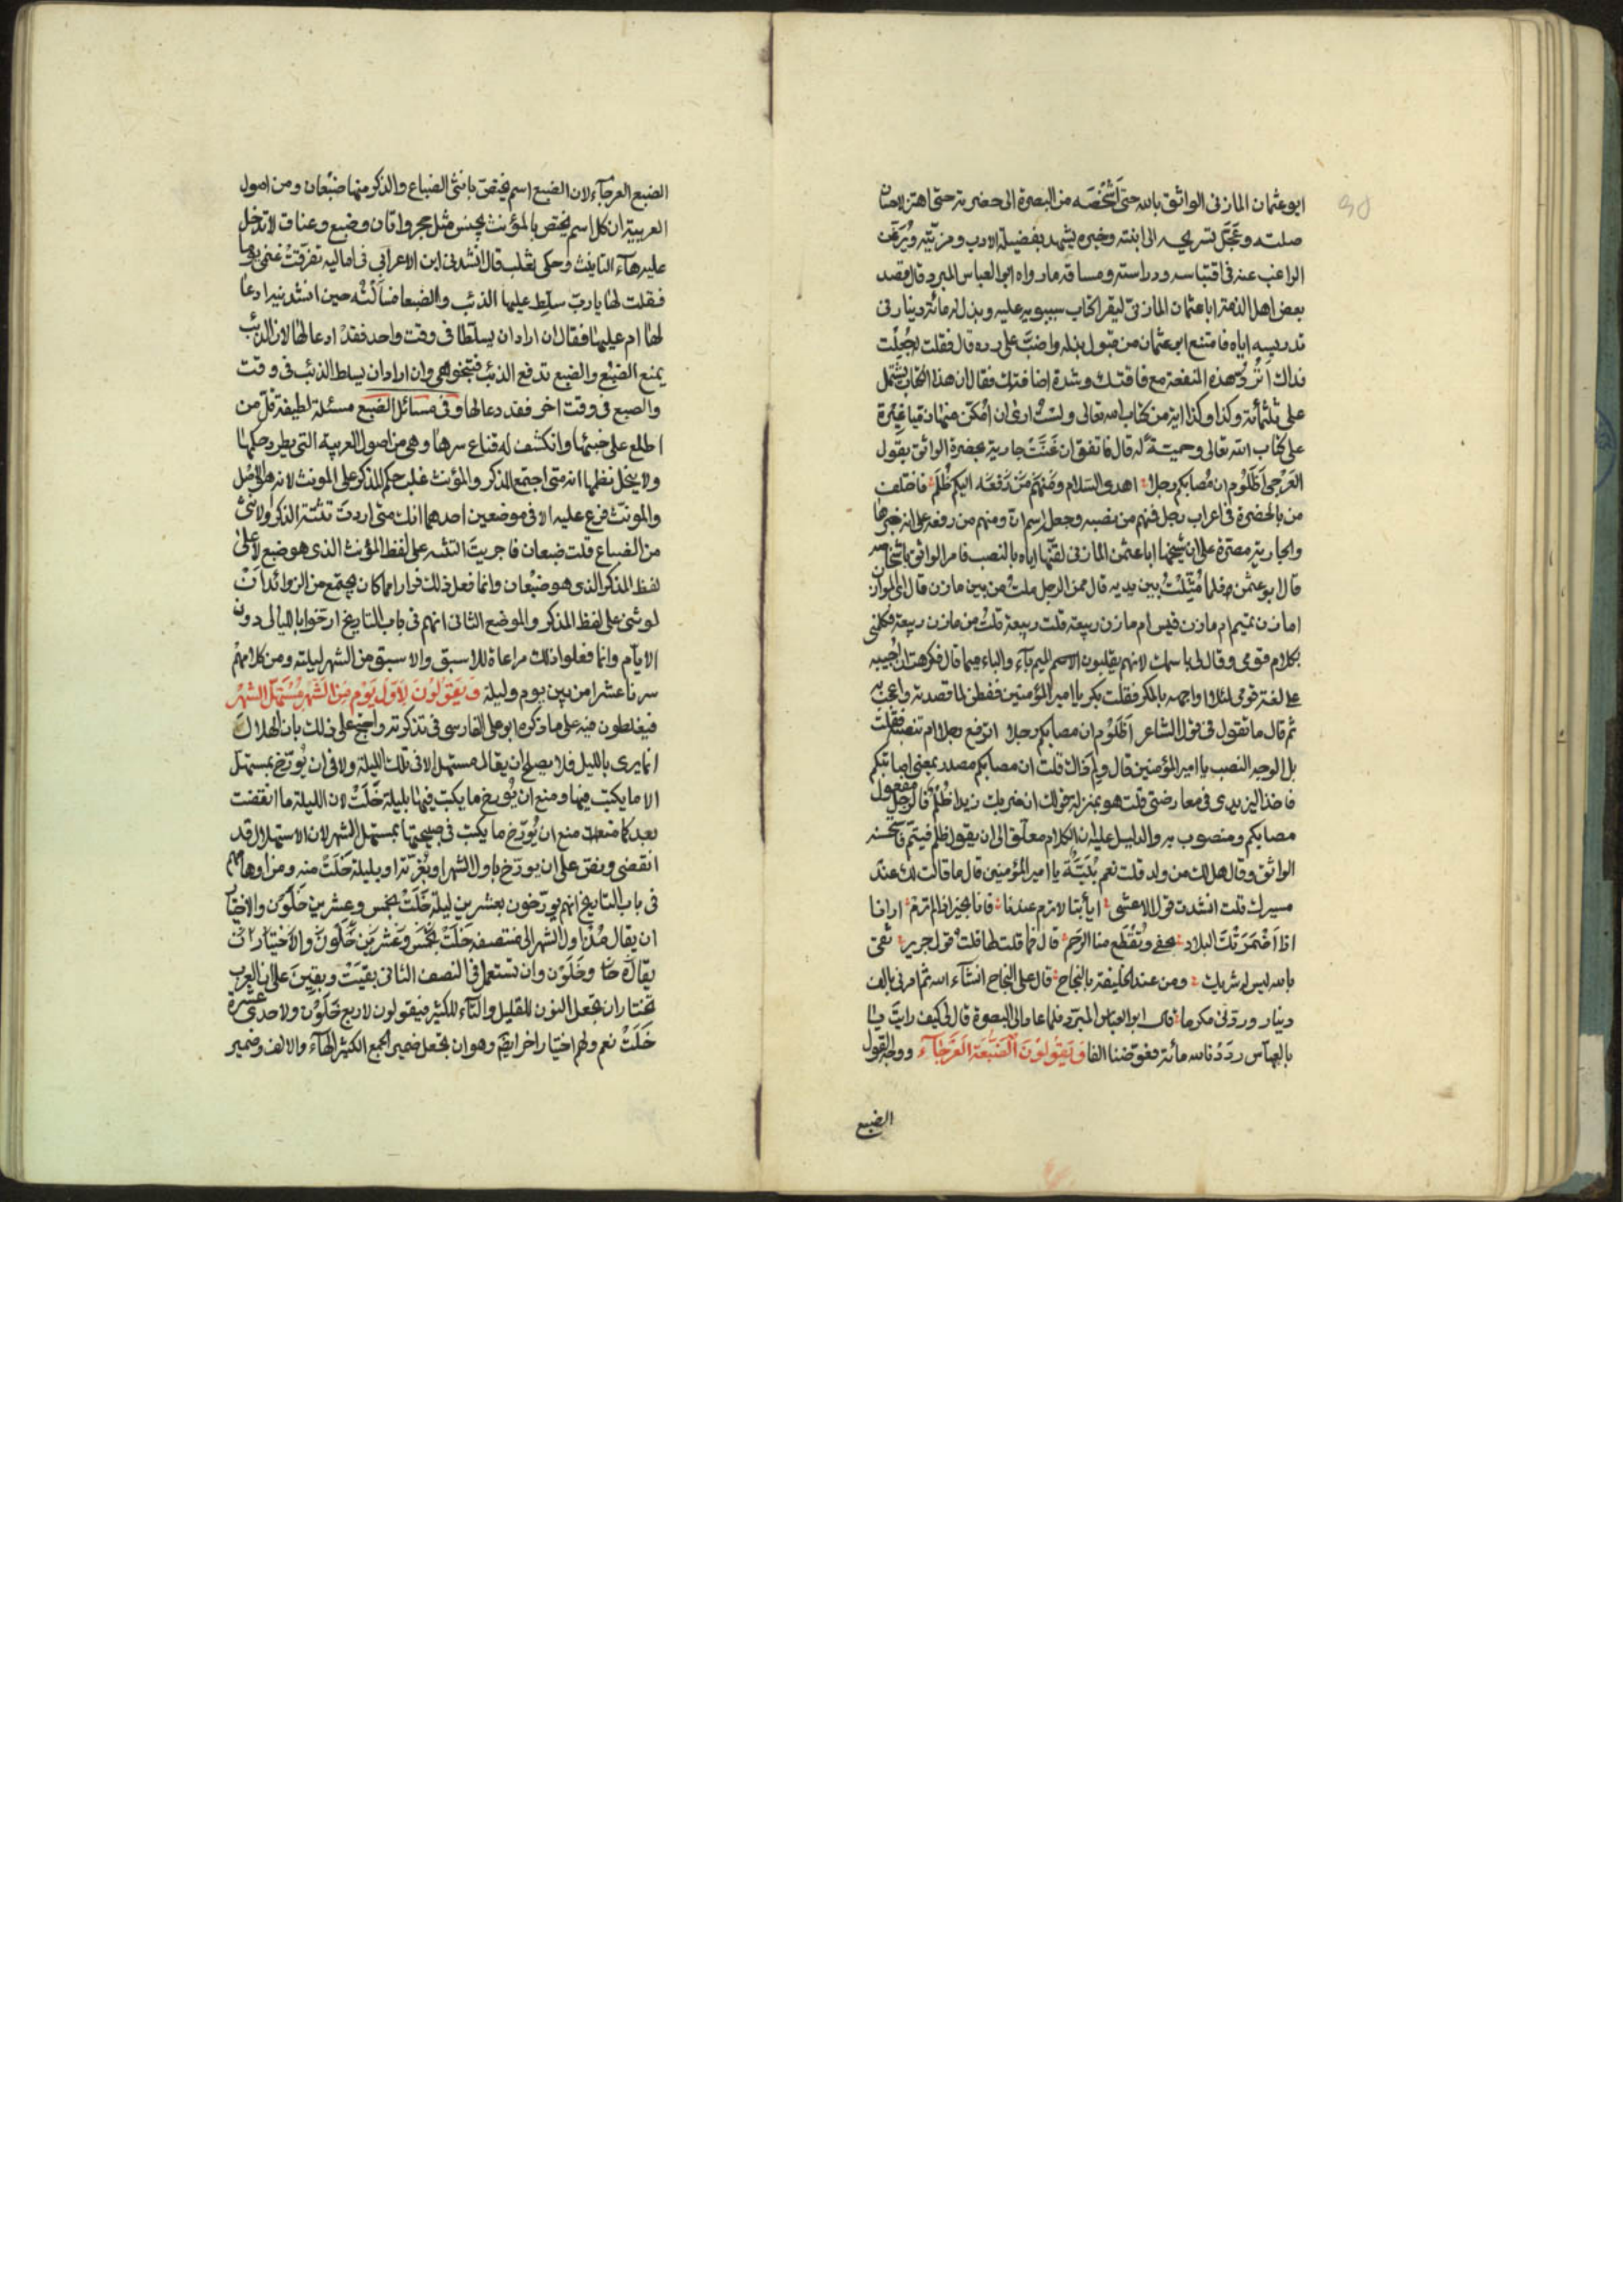 ابو عثمان المازنى الواثق بالله حتى اَشْخَصَه من البصرة الى حضرته حتى اهتز لاحسان
صلته وعَجَّل تسريحه الى ابنته وخبره يشهد بفضيلة الادب ومزيّته ويُرَغّب
الراغب عنه فى اقتباسه ودراسته ومساقه ما رواه ابو العباس المبرد قال قصد
بعض اهل الذمة ابا عثمان المازنىّ ليقرا كتاب سيبويه عليه وبذل له مائة دينار فى
تدريسه اياه فامتنع ابو عثمان من قبول بذله واضبّ على رده قال فقلت له جُعِلْت
فداك اَتَرُدّ هذه النفقة مع فاقتك وشدة اضاقتك فقال ان هذا الكتاب يشتمل
على ثلثمائة وكذا وكذا اية من كتاب الله تعالى ولسْتُ ارى ان اُمَكّن منها ذميا غَيْرة
على كتاب الله تعالى وحميةً له قال فاتفق ان غَنَّتْ جارية بحضرة الواثق بقول
العَرْجى اَظَلُوْمُ ان مُصابكم رجلا اهدى السّلام اليكم ظُلْمُ فاختلف
من بالحضرة فى اعراب رجل فمنهم من نصبه وجعله اسم انّ ومنهم من رفعه على انه خبرها
والجارية مصرّة على ان شيخها ابا عثمن المازنى لقّنها اياه بالنصب فامر الواثق باشخاصه
قال ابو عثمن فلما مُثِّلْتُ بين يديه قال ممن الرجل قلت من بنى مازن قال اىّ الموازن
امازن تميم ام مازن قيس ام مازن ربيعة قلت ربيعة قلت من مازن ربيعة فكلمنى
بكلام قومى وقال لى باسمك لانهم يقلبون الميم باء والباء ميما قال فكرهت ان اُجيبه
على لغة قومى لئلا اواجهه بالمكر فقلت بكر يا امير المؤمنين ففطن لما قصدته واعجب به
ثم قال ما تقول فى قول الشاعر اَظَلُوْم ان مصابكم رجلا اترفع رجلا ام تنصبه فقلت
بل الوجه النصب يا امير المؤمنين قال ولِمَ ذاك قلت ان مصابكم مصدر بمعنى اصابتكم
فاخذ اليزيدى فى معارضتى قلت هو بمنزلة قولك ان ضربك زيدا ظُلْمٌ فالرجل مفعول
مصابكم ومنصوب به والدليل عليه ان الكلام معلّق الى ان يقول ظلم فيتمّ فاستحسنه
الواثق وقال هل لك من ولد قلت نعم بُنَيَّة يا امير المؤمنين قال ما قالت لك عند
مسيرك قلت انشدت قول الاعشى ايا أبتا لا ترم عندنا فانا بخير اذا لم ترم ارانا
اذا اَضْمَرَتْك البلاد نجفى وتُقْطَع منا الرَحِم قال فما قلت لها قلت قول جرير ثقى
بالله ليس له شريك ومن عند الخليفة بالنجاح قال على النجاح انشآء الله ثم امر لى بالف
دينار وردّنى مكرما قال ابو العباس المبرّد فلما عاد الى البصرة قال لى كيف رايت يا
با العباس ردَدْنا لله مائة فعوّضنا الفا وَيَقُولُوْنَ اَلضَّبُعَة العَرْجَآء ووجه القول
الضبع
الضبع العرجآء لان الضبع اسم يختصّ بانثى الضباع والذكر منها ضِبْعان ومن اصول
العربية ان كل اسم يختص بالمؤنث بجنس مثل حجر واتان وضبع وعناق لا تدخل
عليه هآء التانيث وحكى ثعلب قال انشدنى ابن الاعرابى فى اماليه تفرّقتْ غنمى يوما
فقلت لها يا ربّ سلّط عليها الذئب والضبعا فسَألْتُه حين انشدنيه ادعا
لها ام عليها فقال ان اراد ان يسلّطا فى وقت واحد فقدْ دعا لها لان الذئب
يمنع الضبُع والضبع تدفع الذئب فتنجو هى وان اراد ان يسلط الذئب فى وقت
والضبع فى وقت اخر فقد دعا عليها وفى مسائل الضبع مسئلة لطيفة قلّ من
اطلع على خبئها وانكشف له قناع سرها وهى من اصول العربية التى يطرد حكمها
ولا ينحل نظمها انه متى اجتمع المذكر والمؤنث غلب حكم المذكر على المونث لانه هو الاصل
والمونث فرع عليه الا فى موضعين احدهما انك متى اردت تثنية الذكر والانثى
من الضباع قلت ضبعان فاجريت التثنيه على لفظ المؤنث الذى هو ضبع لا على
لفظ المذكر الذى هو ضبْعان وانما فعل ذلك فرارا مما كان يجتمع من الزوائد اَنْ
لو ثنى على لفظ المذكر والموضع الثانى انهم فى باب التاريخ ارّخوا بالليالى دون
الايّام وانما فعلوا ذلك مراعاة للاسبق والاسبق من الشهر ليلته ومن كلامهم
سرنا عشرا من بين يوم وليلة وَيَقوُلُوْنَ لِاَوَّل يَوْم مِنَ الشَّهْرِ مُسْتَهَلّ الشهْر
فيغلطون فيه على ما ذكره ابو على الفارسى فى تذكرته واحتج على ذلك بان الهلال
انما يرى بالليل فلا يصلح ان يقال مستهل الا فى تلك الليلة ولا فى ان يُورّخ بمستهل
الا ما يكتب فيها ومنع ان يُورخ ما يكتب فيها بليلة خَلَتْ لان الليلة ما انقضت
بعد كما منع ان يُورّخ ما يكتب فى صبيحتها بمستهل الشهر لان الاستهلال قد
انقضى ونص على ان يورّخ باول الشهر او بغُرّته او بليلة خَلَتْ منه ومن اوهامهم
فى باب التاريخ انهم يورّخون بعشرين ليلة خَلَتْ بخمس وعشرين خَلَوْن والاختيار
ان يقال مُذْ اول الشهر الى منتصفه خَلَتْ بخمس وعشرين خَلَوْنَ والاختيار ان
يقال خَلَتْ وخَلَوْن وان تستعمل فى النصف الثانى بقيَتْ وبقِينَ على ان العرب
تختار ان تجعل النون للقليل والتآء للكثير فيقولون لاربع خَلَوْن ولاحدى عشرة
خَلَتْ نعم ولهم اختيار اخر ايضا وهو ان تجعل ضمير الجمع الكثير الهآء والالف وضمير